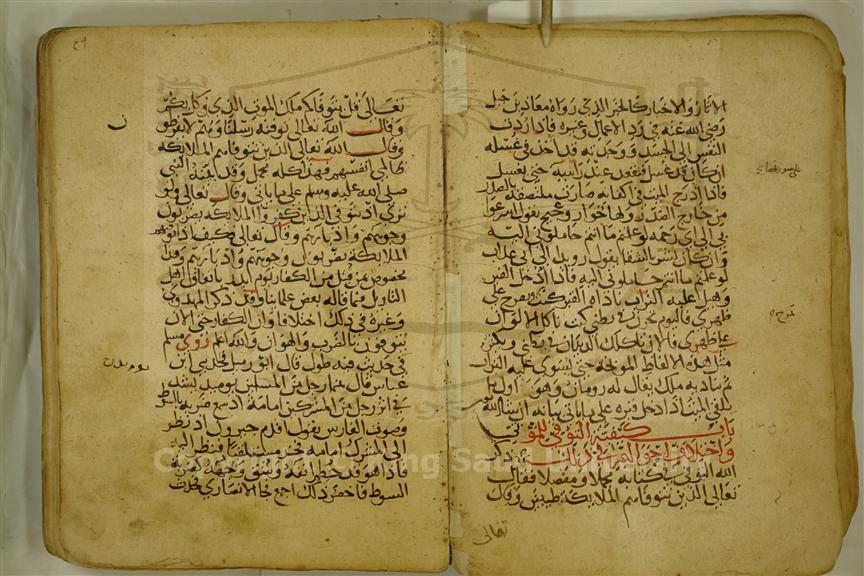 الاثار والاخبار كالخبر الذي رواه معاذ بن جبل
رضي الله عنه في رد الاعمال وغيره فاذا ردت
النفس الى الجسد ووجدته قد اخذ في غسله
ان كان قد غسل فتقعد عند راسه حتى يغسل
فاذا ادرج الميت في اكفانه صارت ملتصقة بالصدر
من خارج الصدر ولها خوار وعجيج يقول اسرعوا
بي الى اي رحمة لو علمتم ما انتم حاملوني اليه
وان كان يبشر بالشقا يقول رويدا الى اي عذاب
لو علمتم ما انتم حاملي اليه فاذا ادخل القبر
وهيل عليه التراب ناداه القبر كنت تفرح على
ظهري فاليوم تحزن في بطني كنت تاكل الالوان
على ظهري فالان تاكلك الديدان في بطني ويكثر
مثل هذه الالفاظ الموبخة حتى يسوى عليه التراب
ثم يناديه ملك يقال له رومان وهو اول ما
يلقى الميت اذا ادخل قبره على ما ياتي بيانه ان شا الله
باب كيفية التوفي للموتى
واختلاف احوالهم في ذلك ذكر
الله التوفي في كتابه مجملا ومفصلا فقال
تعالى الذين تتوفاهم الملايكة طيبين وقال
تعالى
تعالى قل يتوفاكم ملك الموت الذي وكل بكم
وقال الله تعالى توفته رسلنا وهم لا يفرطون
وقال الله تعالى الذين تتوفاهم الملايكة
ظالمي انفسهم فهذا كله مجمل وقد بينه النبي
صلى الله عليه وسلم على ما ياتي وقال تعالى ولو
ترى اذ يتوفى الذين كفروا الملايكة يضربون
وجوههم وادبارهم وقال تعالى فكيف اذا توفتهم
الملايكة يضربون وجوههم وادبارهم وهذا
مخصوص من قتل من الكفار يوم بدر باتفاق اهل
التاويل فيما قاله بعض علماينا وقد ذكر المهدوي
وغيره في ذلك اختلافا وان الكفار حتى الان
يتوفون بالضرب والهوان والله اعلم روى مسلم
في حديث فيه طول قال ابو زميل فحدثني ابن
عباس قال بينما رجل من المسلمين يوميذ يشتد
في اثر رجل من المشركين امامه اذ سمع ضربة بالسوط
وصوت الفارس يقول اقدم حيزوم اذ نظر
الى المشرك امامه خر مستلقيا فنظر اليه
فاذا هو قد خطم انفه وشق وجهه كضربة
السوط فاخضر ذلك اجمع فجا الانصاري فحدث